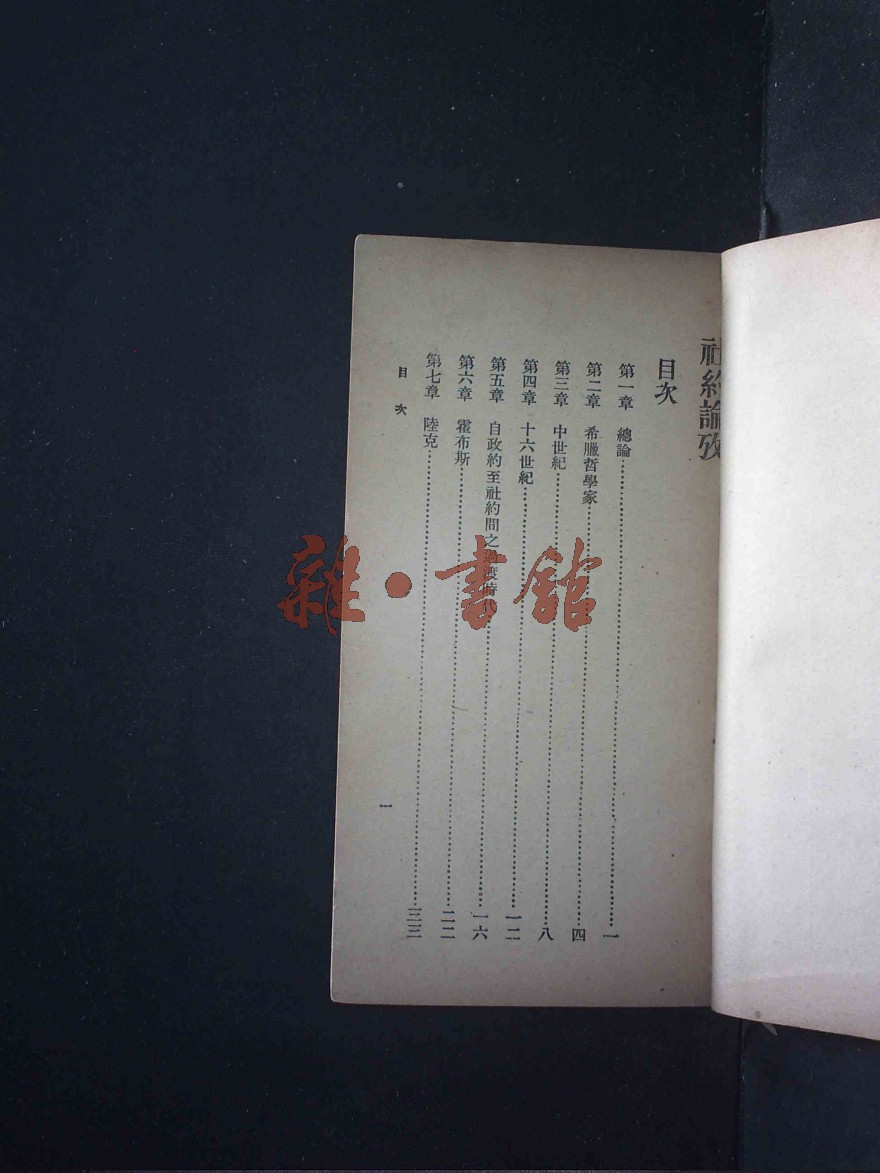 社約論攷
目次
第一章 總論……一
第二章 希臘哲學家……四
第三章 中世紀……八
第四章 十六世紀……一二
第五章 自政約至社約間之過渡時代……一六
第六章 霍布斯……二二
第七章 陸克……三三
目次
一
雜·書館